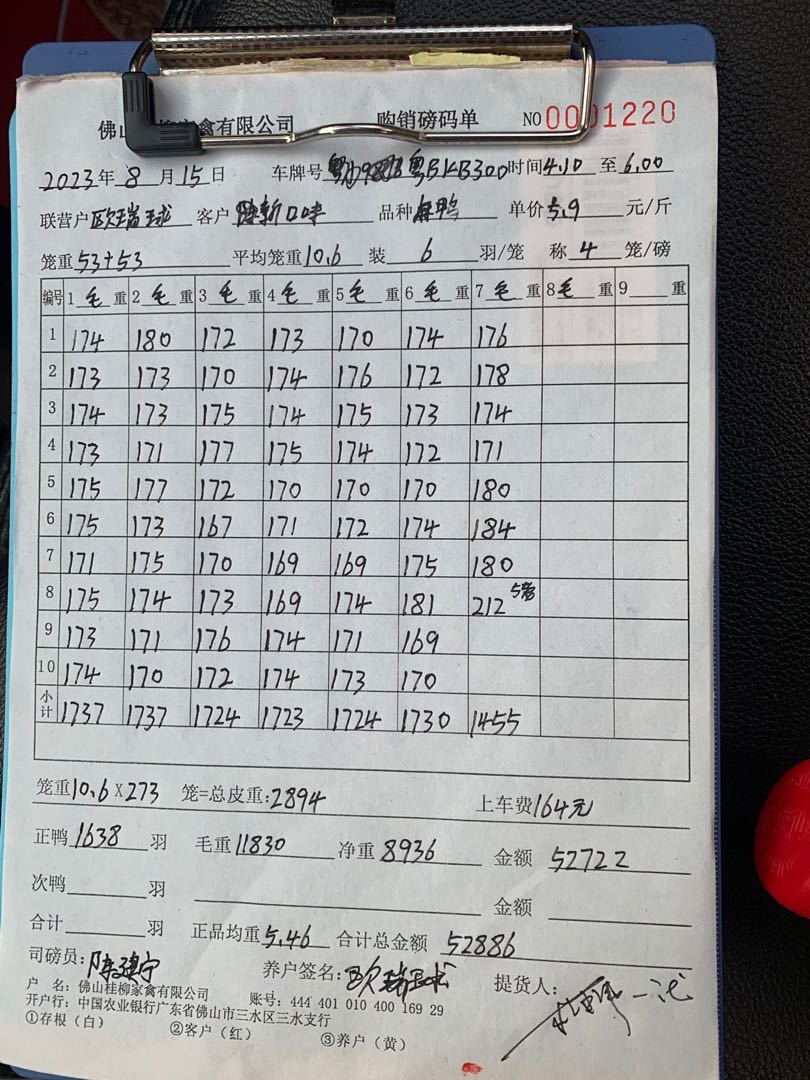 佛山 家禽有限公司 购销磅码单 NO 0001220
2023年8月15日 车牌号 粤 时间4.10至6.00
联营户欧瑞球 客户 陈新口味 品种麻鸭 单价5.9元/斤
笼重53+53 平均笼重10.6 装6羽/笼 称4笼/磅
编号 1毛重 2毛重 3毛重 4毛重 5毛重 6毛重 7毛重 8毛重 9 重
1 174 180 172 173 170 174 176
2 173 173 170 174 176 172 178
3 174 173 175 174 175 173 174
4 173 171 177 175 174 172 171
5 175 177 172 170 170 170 180
6 175 173 167 171 172 174 184
7 171 175 170 169 169 175 180
8 175 174 173 169 174 181 212
9 173 171 176 174 171 169
10 174 170 172 174 173 170
小计 1737 1737 1724 1723 1724 1730 1455
笼重10.6×273 笼=总皮重:2894 上车费164元
正鸭1638羽 毛重11830 净重8936 金额52722
次鸭 羽 金额
合计 羽 正品均重5.46 合计总金额52886
司磅员: 养户签名:欧瑞球 提货人:
户 名:佛山桂柳家禽有限公司 账号:444 401 010 400 169 29
开户行:中国农业银行广东省佛山市三水区三水支行
①存根(白) ②客户(红) ③养户(黄)